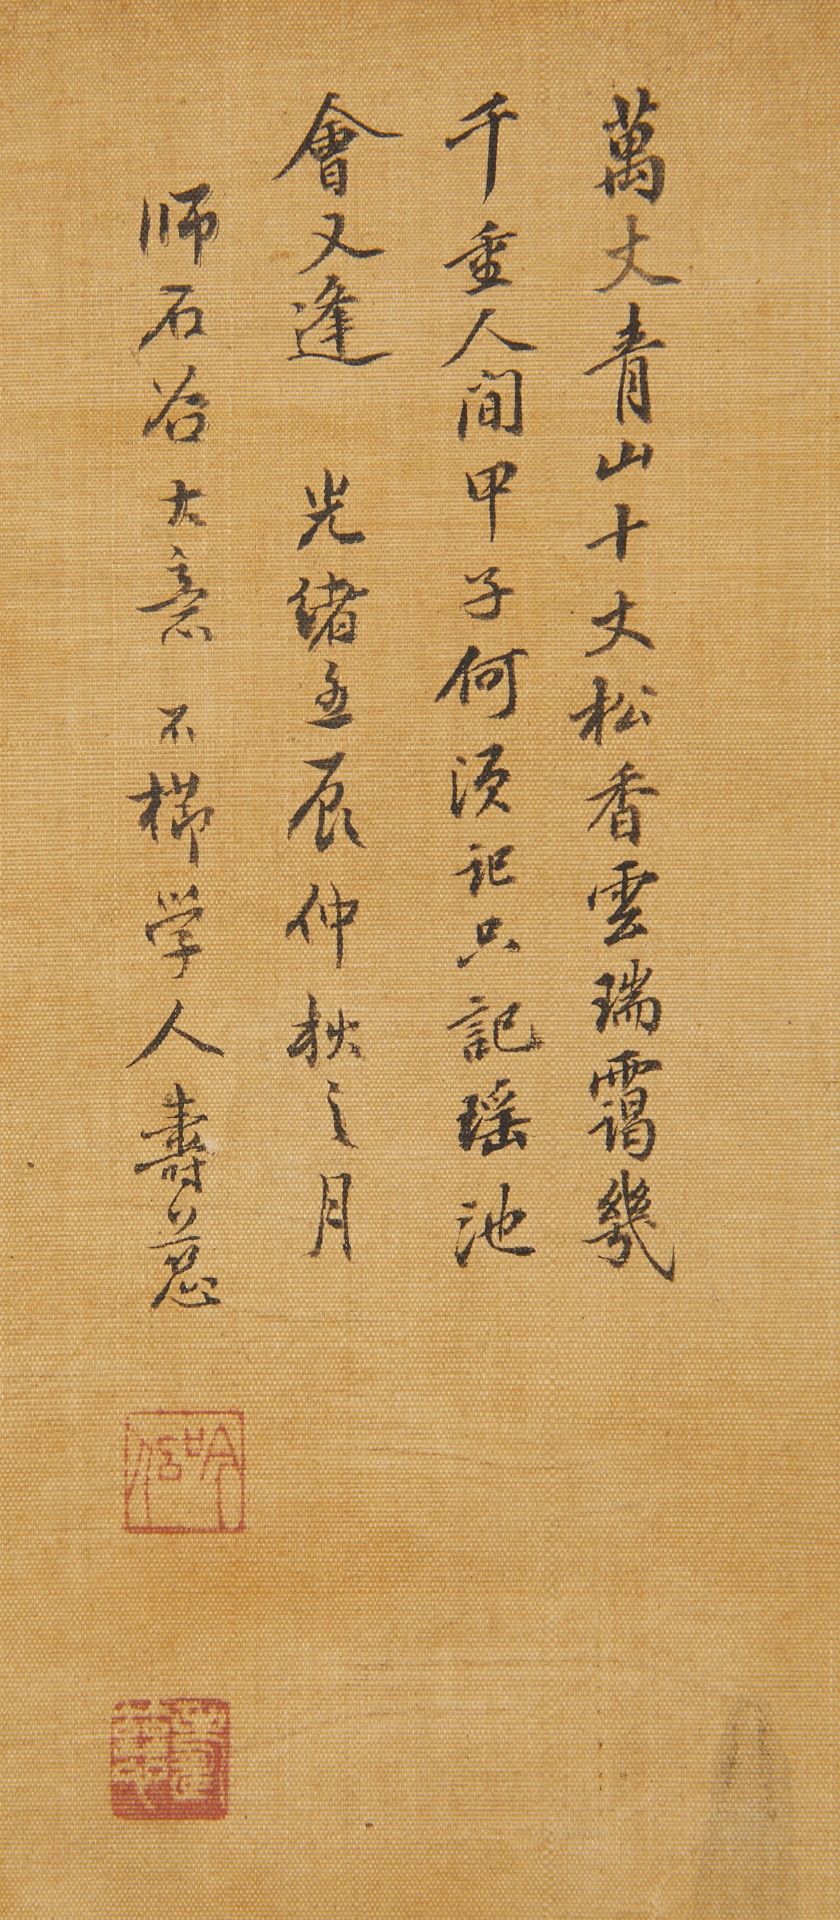 萬丈青山十丈松香雲瑞靄幾
千重人間甲子何須記只記瑶池
會又逢 光緒壬辰仲秋之月
师石谷大意 不櫛学人壽慈